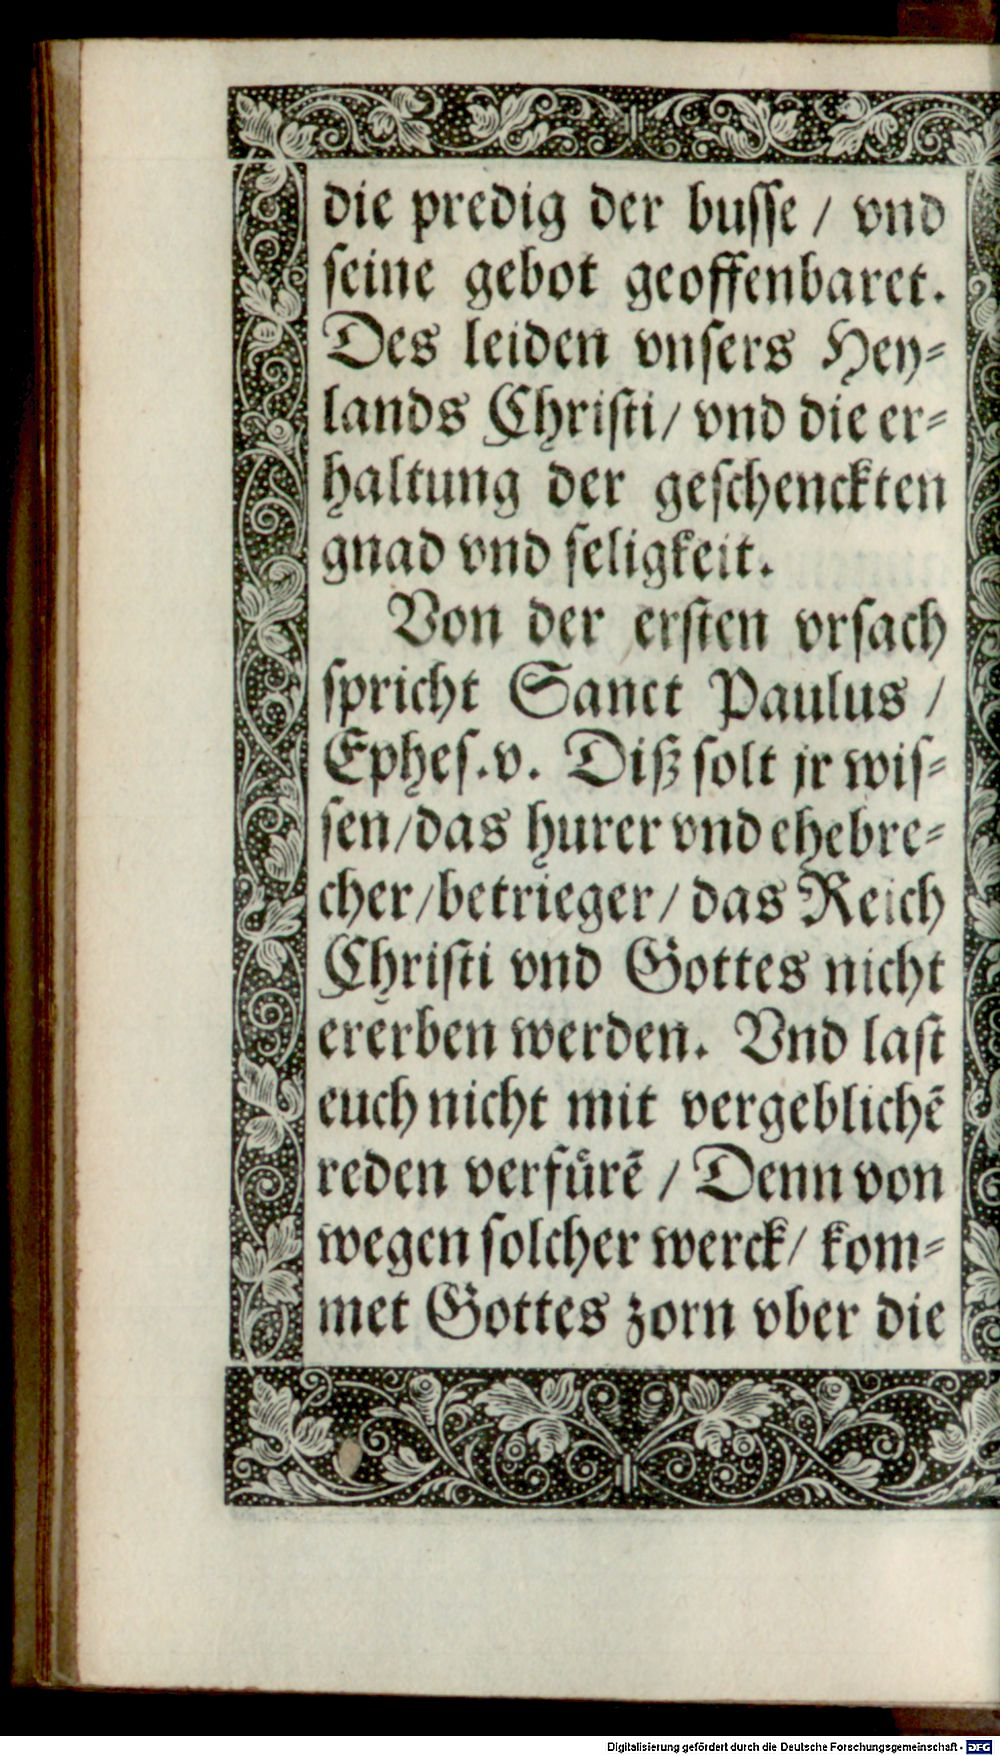 die predig der busse / vnd
seine gebot geoffenbaret.
Des leiden vnsers Hey-
lands Christi/ vnd die er-
haltung der geschenckten
gnad vnd seligkeit.
Von der ersten vrsach
spricht Sanct Paulus /
Ephes.v. Diß solt jr wis-
sen/das hurer vnd ehebre-
cher/betrieger/ das Reich
Christi vnd Gottes nicht
ererben werden. Vnd last
euch nicht mit vergeblichẽ
reden verfürẽ / Denn von
wegen solcher werck/ kom-
met Gottes zorn vber die
Digitalisierung gefördert durch die Deutsche Forschungsgemeinschaft - DFG